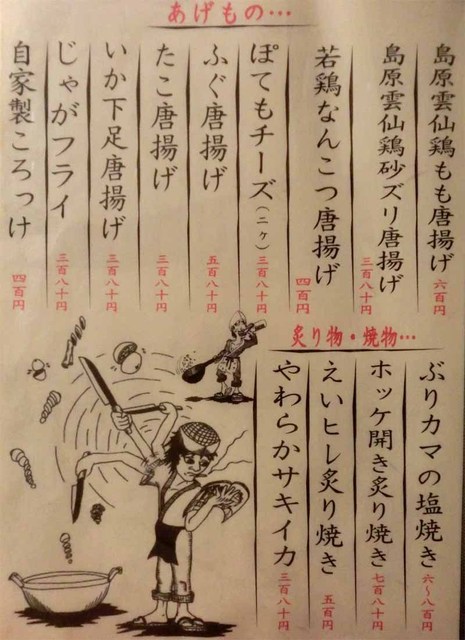 あげもの…
島原雲仙鶏もも唐揚げ 六百円
島原雲仙鶏砂ズリ唐揚げ 三百八十円
若鶏なんこつ唐揚げ 四百円
ぽてもチーズ(二ヶ) 三百八十円
ふぐ唐揚げ 五百八十円
たこ唐揚げ 三百八十円
いか下足唐揚げ 三百八十円
じゃがフライ 三百八十円
自家製ころっけ 四百円
炙り物・焼物…
ぶりカマの塩焼き 六~八百円
ホッケ開き炙り焼き 七百八十円
えいヒレ炙り焼き 五百円
やわらかサキイカ 三百八十円